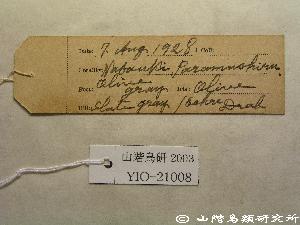 Date: 7. Aug. 1928
Locality: Paramushiru.
Feet: Olive gray Iris: Olive
Bill: Slate gray Drab
山階鳥研 2003
YIO-21008
©山階鳥類研究所